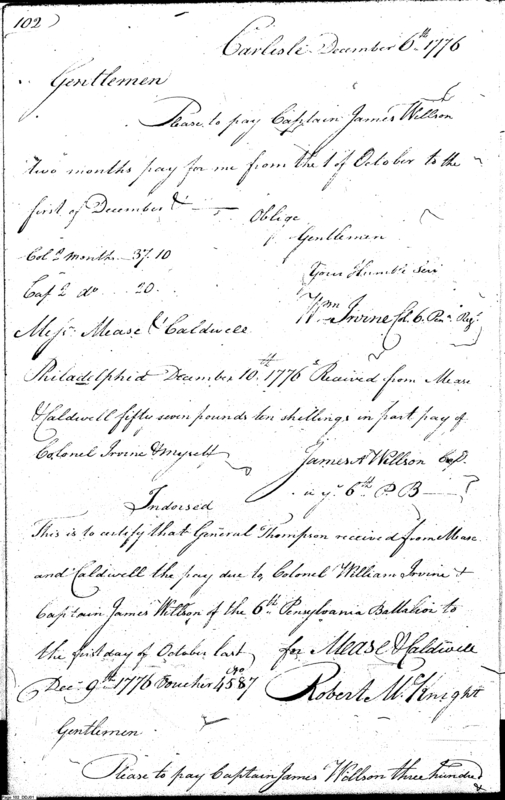 102
Carlisle December 6th 1776
Gentlemen
Please to pay Captain James Willson
two months pay for me from the 1 of October to the
first of December &
Oblige
Gentlemen
Col 2 months 37.10
Your Humb Ser
Cap 2 do 20.
Wm Irvine Col. 6. Pen Reg
Mess Mease & Caldwell
Philadelphia December 10th 1776 Received from Mease
& Caldwell fifty seven pounds ten shillings in part pay of
Colonel Irvine & myself
James A Willson Cap
in ye 6th P. B
Indorsed
This is to certify that General Thompson received from Mease
and Caldwell the pay due to Colonel William Irvine &
Captain James Willson of the 6th Pensylvania Battalion to
the first day of October last
for Mease & Caldwell
Dec 9th 1776 Voucher No 4587
Robert McKnight
Gentlemen
Please to pay Captain James Willson three hundred
&